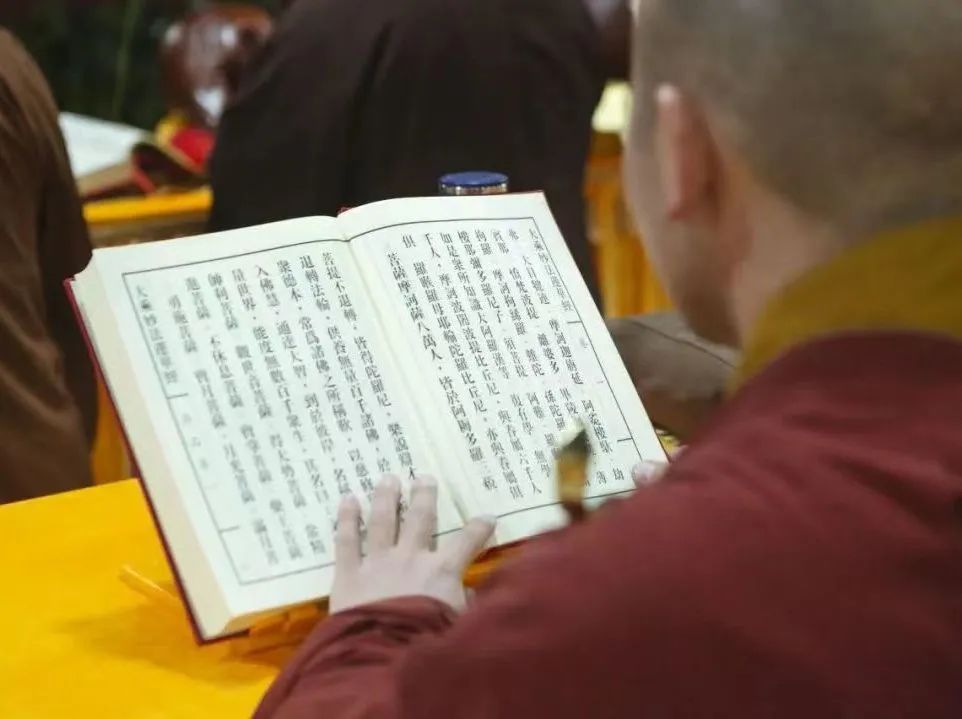 大乘妙法蓮華經
那。大目犍連。摩訶迦旃延。阿㝹樓馱。劫
賓那。憍梵波提。離婆多。畢陵 薄
拘羅。摩訶拘絺羅。難陀。孫陀
樓那彌多羅尼子。須菩提。阿難。
如是眾所知識大阿羅漢等。復有學無學
千人。摩訶波闍波提比丘尼。與眷屬六千人
俱。羅睺羅母耶輸陀羅比丘尼。亦與眷屬俱
菩薩摩訶薩八萬人。皆於阿耨多羅三藐
菩提不退轉。皆得陀羅尼。樂說辯才
退轉法輪。供養無量百千諸佛。於
眾德本。常為諸佛之所稱歎。以慈修
入佛慧。通達大智。到於彼岸。名
量世界。能度無數百千眾生。其名曰
師利菩薩。觀世音菩薩。得大勢菩薩。常精
進菩薩。不休息菩薩。寶掌菩薩。藥王菩薩
勇施菩薩。寶月菩薩。月光菩薩。滿月菩
大乘妙法蓮華經